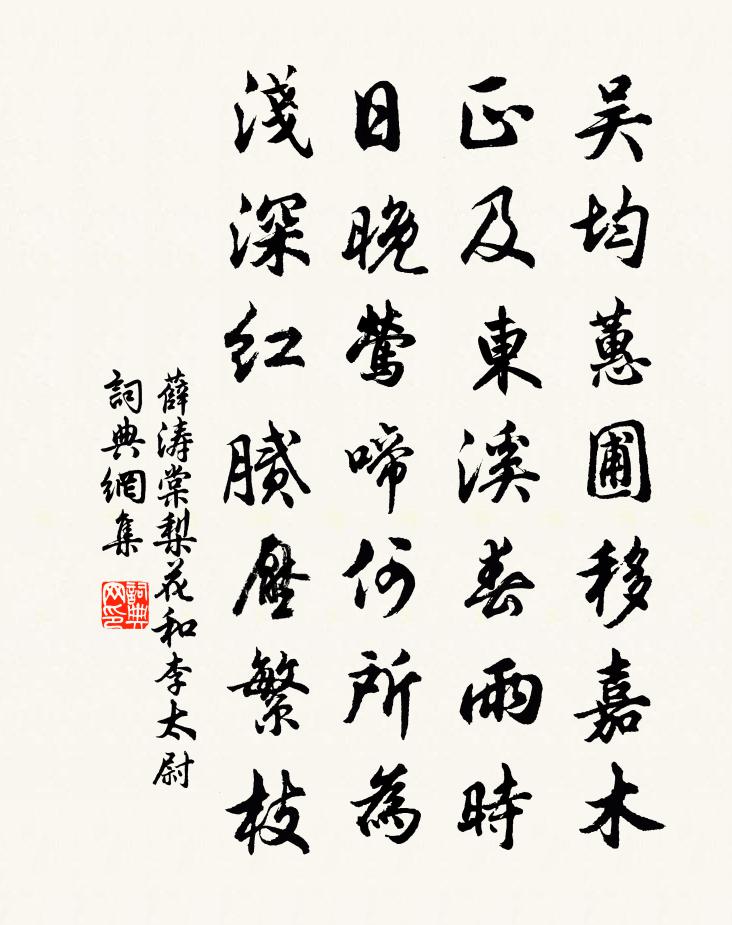 吴均蕙圃移嘉木
正及東溪春雨時
日晚鶯啼何所為
淺深紅膩壓繁枝
薛濤棠梨花和李太尉
詞典網集
詞典网印